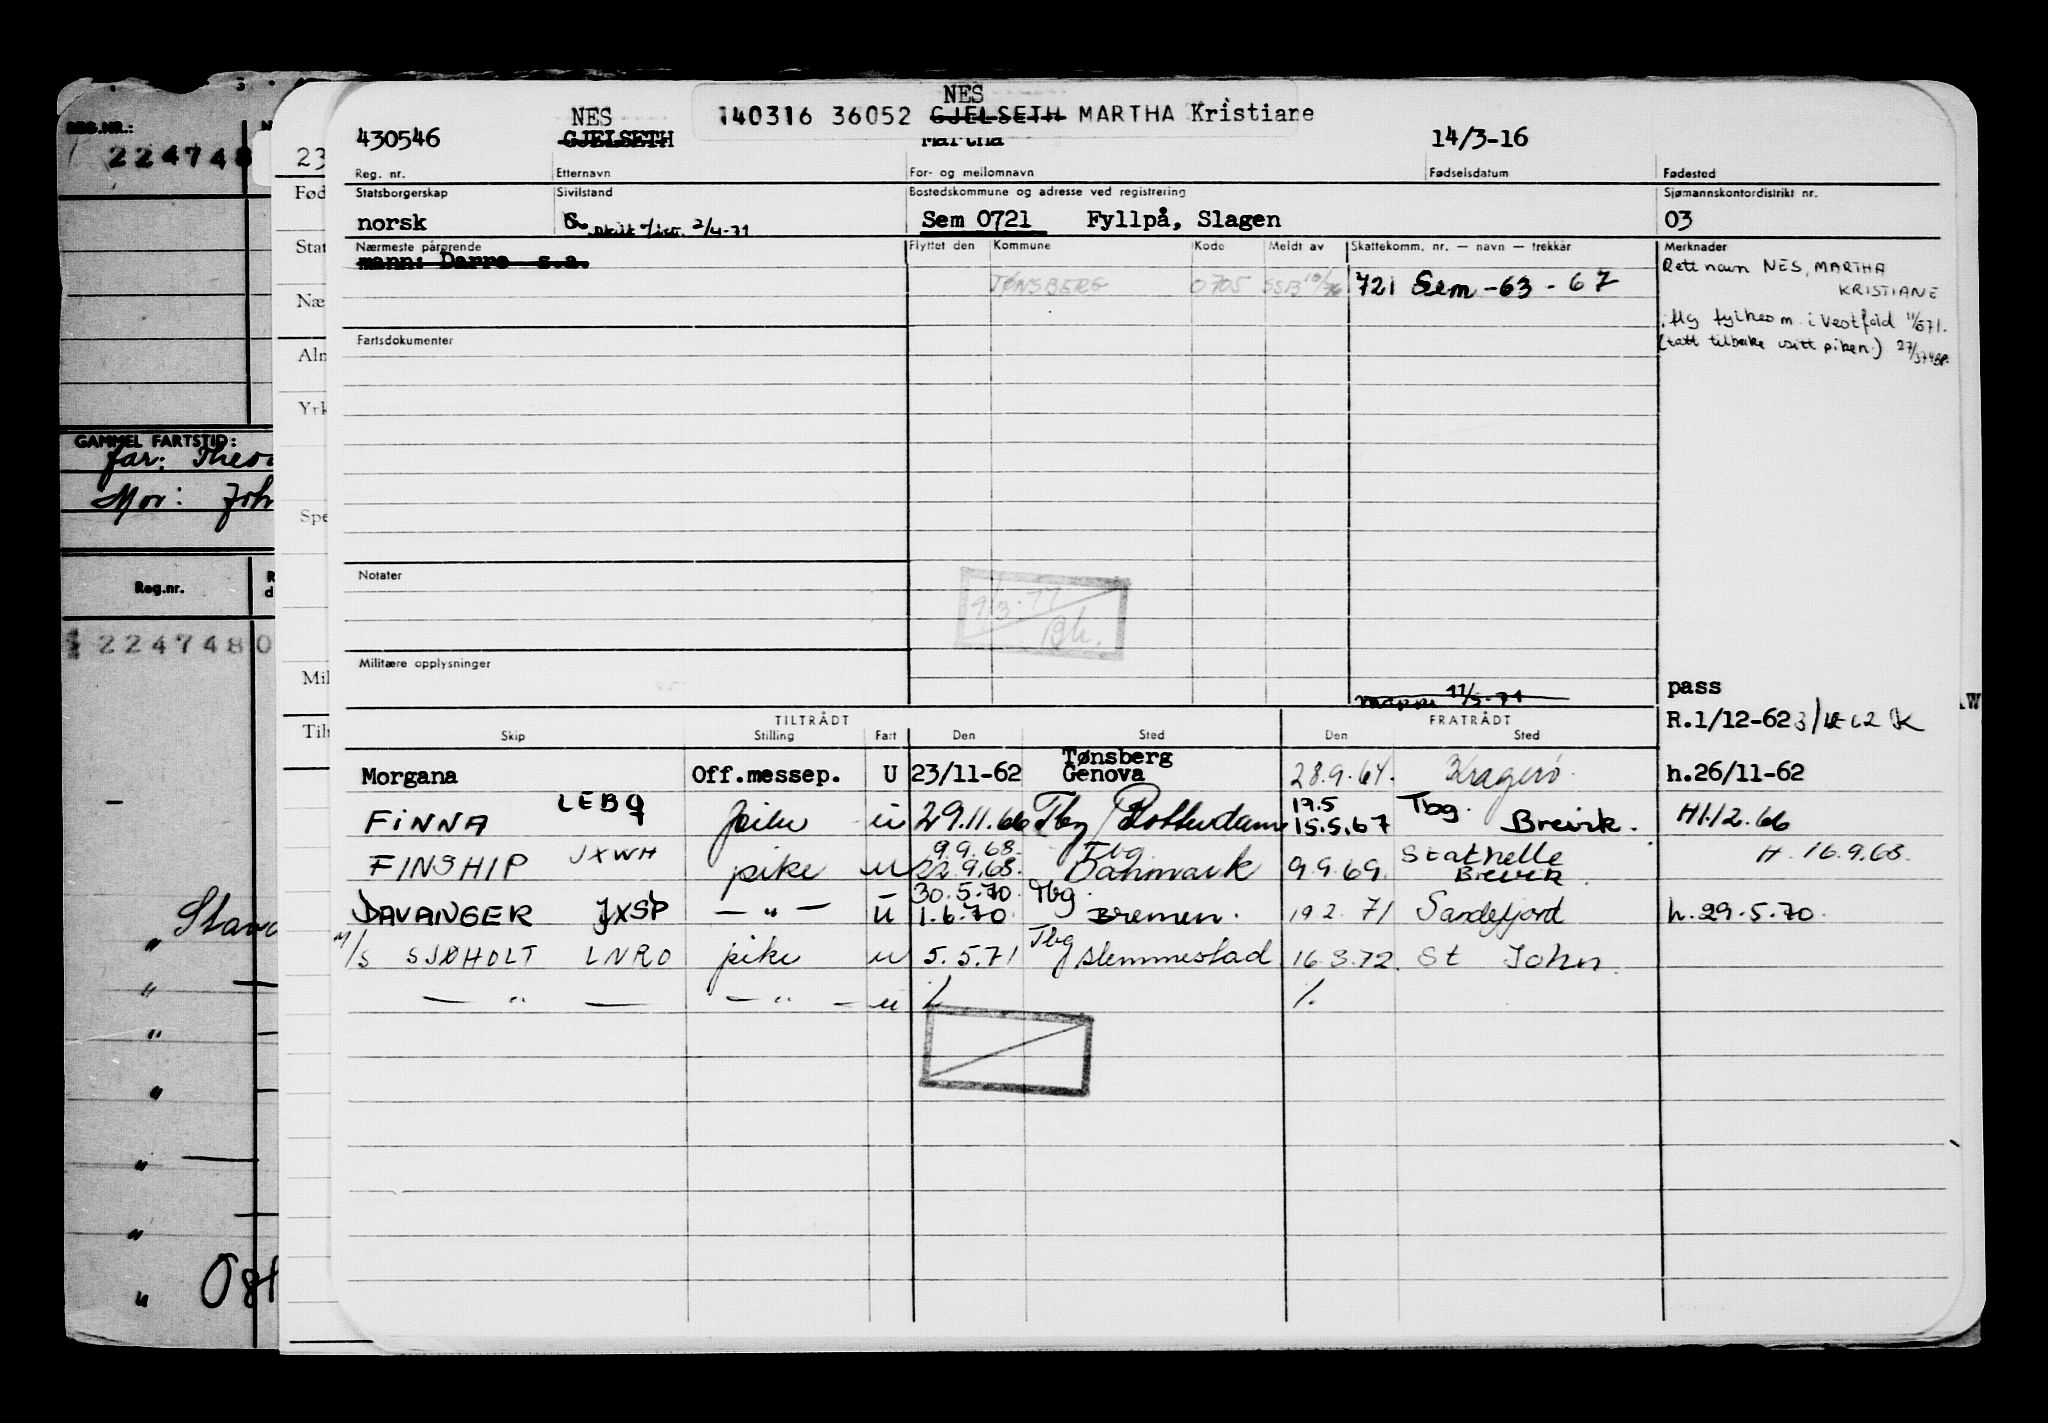 REG.NR.:
224748
GAMMEL FARTSTID:
far:
Mor:
Reg.nr.
2247480
Stava
23
Fød
Stat
Næ
Aln
Yrk
Spe
Mil
Tilr
NES
140316 36052 GJELSETH MARTHA Kristiane
NES
430546 GJELSETH Martha 14/3-16
Reg. nr. Etternavn For- og mellomnavn Fødselsdatum Fødested
Statsborgerskap Sivilstand Bostedskommune og adresse ved registrering Sjømannskontordistrikt nr.
norsk G. skilt 2/4-71 Sem 0721 Fyllpå, Slagen 03
Nærmeste pårørende Flyttet den Kommune Kode Meldt av Skattekomm. nr. — navn — trekkår Merknader
mann: Darre s.a.
TØNSBERG 0705 SSB 10/76 721 Sem -63 - 67
Rett navn NES, MARTHA
KRISTIANE
i Vestfold
(tatt tilbake
Fartsdokumenter
Notater
1/3-77
Bh.
Militære opplysninger
11/5-71
pass
R.1/12-62
TILTRÅDT FRATRÅDT
Skip Stilling Fart Den Sted Den Sted
Morgana Off.messep. U 23/11-62 Tønsberg Genova 28.9.64. Kragerø h.26/11-62
FINNA LEBQ pike u 29.11.66 Tbg Rotterdam 17.5 15.5.67 Tbg. Brevik. H1.12.66
FINSHIP JXWH pike u 9.9.68. 22.9.68. Tbg Danmark 9.9.69. Stathelle Brevik. H. 16.9.68.
DAVANGER JXSP — " — u 30.5.70. 1.6.70 Tbg. Bremen. 19.2.71 Sandefjord h.29.5.70.
M/S SJØHOLT LNRO pike u 5.5.71 Tbg Slemmestad 16.3.72. St John.
— " — — " — u